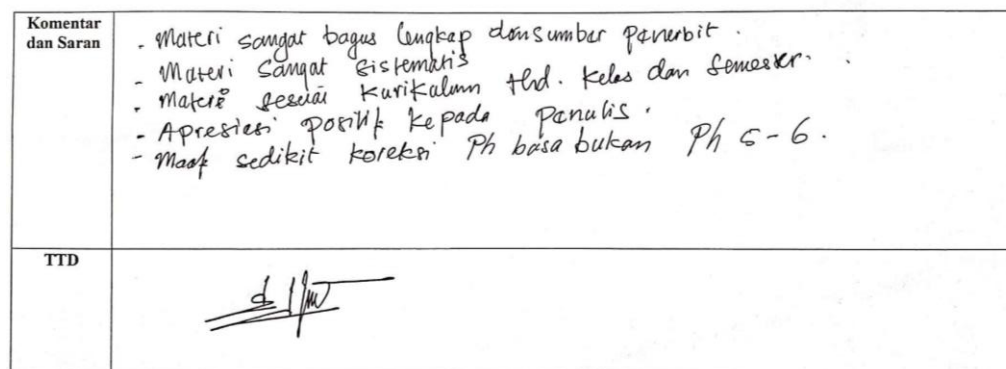 Komentar
dan Saran
- Materi sangat bagus lengkap dan sumber penerbit.
- Materi sangat sistematis
- Materi sesuai kurikulum thd. kelas dan semester.
- Apresiasi positif kepada penulis.
- Maaf sedikit koreksi Ph basa bukan Ph 5-6.
TTD